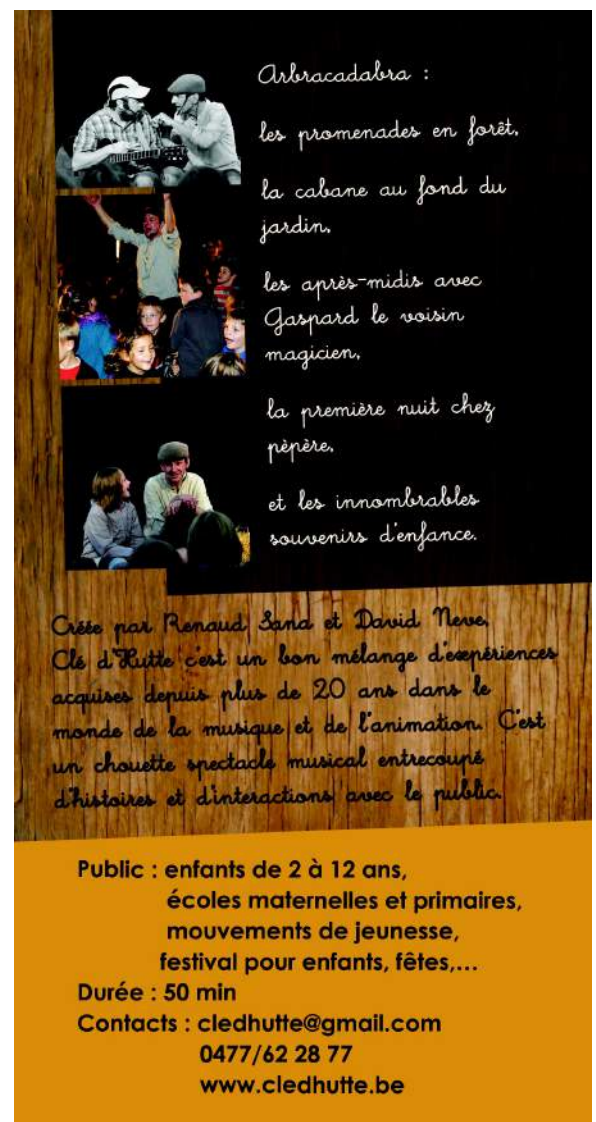 Arbracadabra :
les promenades en forêt,
la cabane au fond du
jardin,
les après-midis avec
Gaspard le voisin
magicien,
la première nuit chez
pèpère,
et les innombrables
souvenirs d'enfance.
Créée par Renaud Sana et David Neve,
Clé d'Hutte c'est un bon mélange d'expériences
acquises depuis plus de 20 ans dans le
monde de la musique et de l'animation. C'est
un chouette spectacle musical entrecoupé
d'histoires et d'interactions avec le public.
Public : enfants de 2 à 12 ans,
écoles maternelles et primaires,
mouvements de jeunesse,
festival pour enfants, fêtes,...
Durée : 50 min
Contacts : cledhutte@gmail.com
0477/62 28 77
www.cledhutte.be